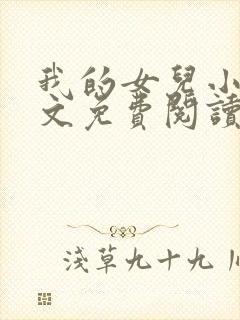 我的女兒小
文免費閱讀
淺草九十九